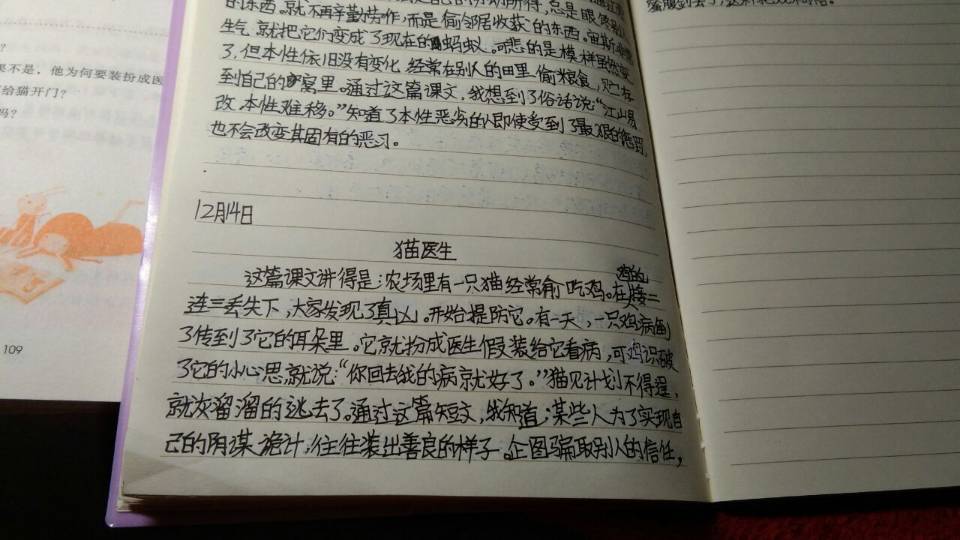 的东西。就不再辛勤劳作,而是偷邻居收获的东西。宙斯
生气就把它们变成了现在的蚂蚁。可悲的是模样虽然变
了,但本性依旧没有变化经常在别人的田里偷粮食,
到自己的窝里。通过这篇课文,我想到了俗话说:“江山易
改,本性难移。”知道了本性恶劣的人即使受到了最狠的惩罚,
也不会改变其固有的恶习。
12月14日
猫医生
这篇课文讲得是:农场里有一只猫经常偷吃鸡。在鸡的接二
连三丢失下,大家发现了真凶。开始提防它。有一天,一只鸡病倒
了传到了它的耳朵里。它就扮成医生假装给它看病,可鸡识破
了它的小心思就说:“你回去我的病就好了。”猫见计划不得逞,
就灰溜溜的逃去了。通过这篇短文,我知道:某些人为了实现自
己的阴谋诡计,往往装出善良的样子。企图骗取别人的信任,
果不是,他为何要装扮成医
给猫开门?
吗?
109